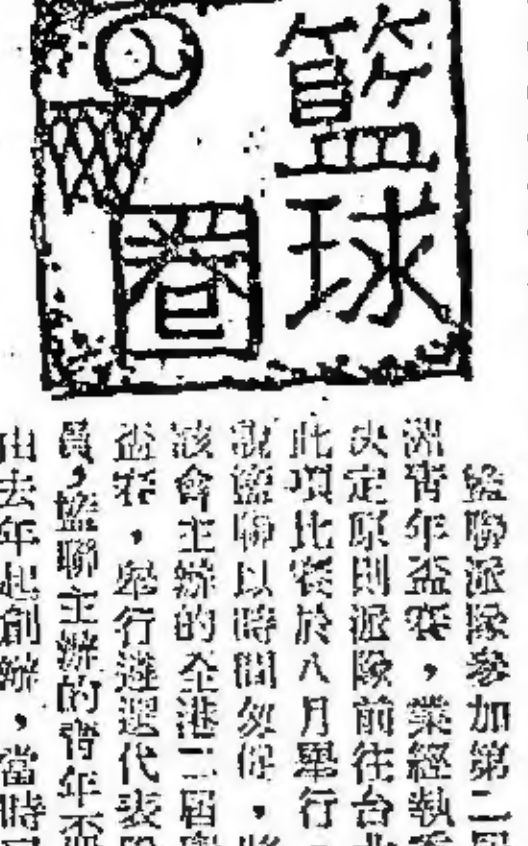 籃球
圈
籃聯派隊參加第二屆
洲青年盃賽,業經執委
決定原則派隊前往台北
此項比賽於八月舉行,
籃聯以時間匆促,將
該會主辦的全港二屆
盃賽,舉行遴選代表隊
員,籃聯主辦的青年盃
由去年起創辦,當時